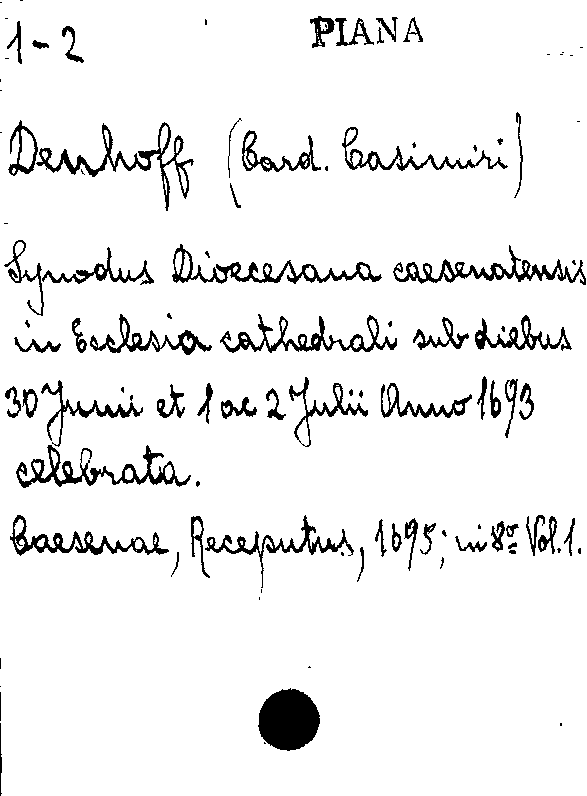 1-2 PIANA
Denhoff (Card. Casimiri)
Synodus Dioecesana caesenatensis
in Ecclesia cathedrali sub diebus
30 Junii et 1 ac 2 Julii Anno 1693
celebrata.
Caesenae, Receputus, 1695; in 8º Vol. 1.